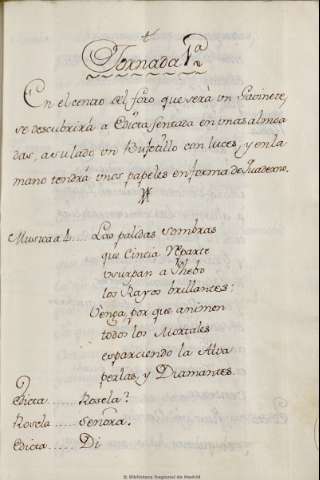 Jornada 1ª
En el centro del foro que será un Gavinete,
se descubrirá a Edicta sentada en unas almoa
das, a su lado un Bufetillo con luces, y en la
mano tendrá unos papeles en forma de Quaderno.
Musica a 4.... Las palidas sombras
que Cincia reparte
usurpan a Phebo
los Rayos brillantes:
Venga, por que animen
todos los Mortales
esparciendo la Alva
perlas, y Diamantes.
Edicta...... Rosela?
Rosela..... Señora.
Edicta...... Di
© Biblioteca Nacional de España